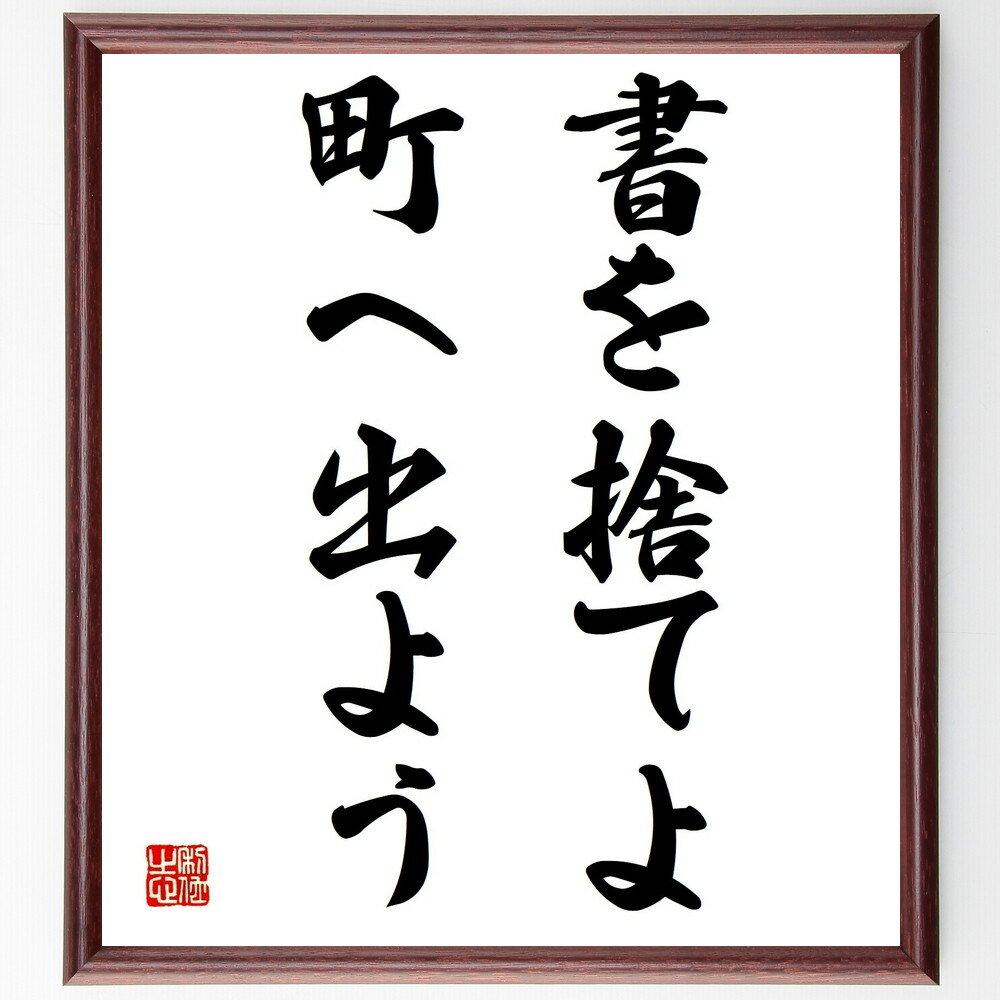 書を捨てよ
町へ出よう